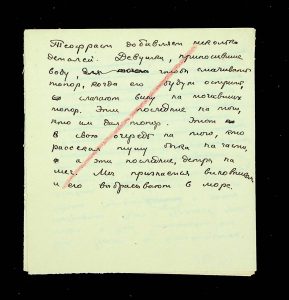 Теофраст добавляет несколько
деталей: Девушки, приносившие
воду, для чтоб смачивать
топор, когда его будут острить,
слагают вину на точивших
топор. Эти последние на того,
кто им дал топор. Этот
в свою очередь на того, кто
рассекал тушу быка на части,
а эти последние, дескать на
меч. Меч признается виновным
и его выбрасывают в море.